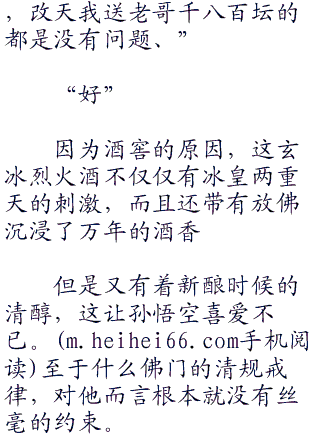 ，改天我送老哥千八百坛的
都是没有问题、”
“好”
因为酒窖的原因，这玄
冰烈火酒不仅仅有冰皇两重
天的刺激，而且还带有放佛
沉浸了万年的酒香
但是又有着新酿时候的
清醇，这让孙悟空喜爱不
已。(m.heihei66.com手机阅
读)至于什么佛门的清规戒
律，对他而言根本就没有丝
毫的约束。